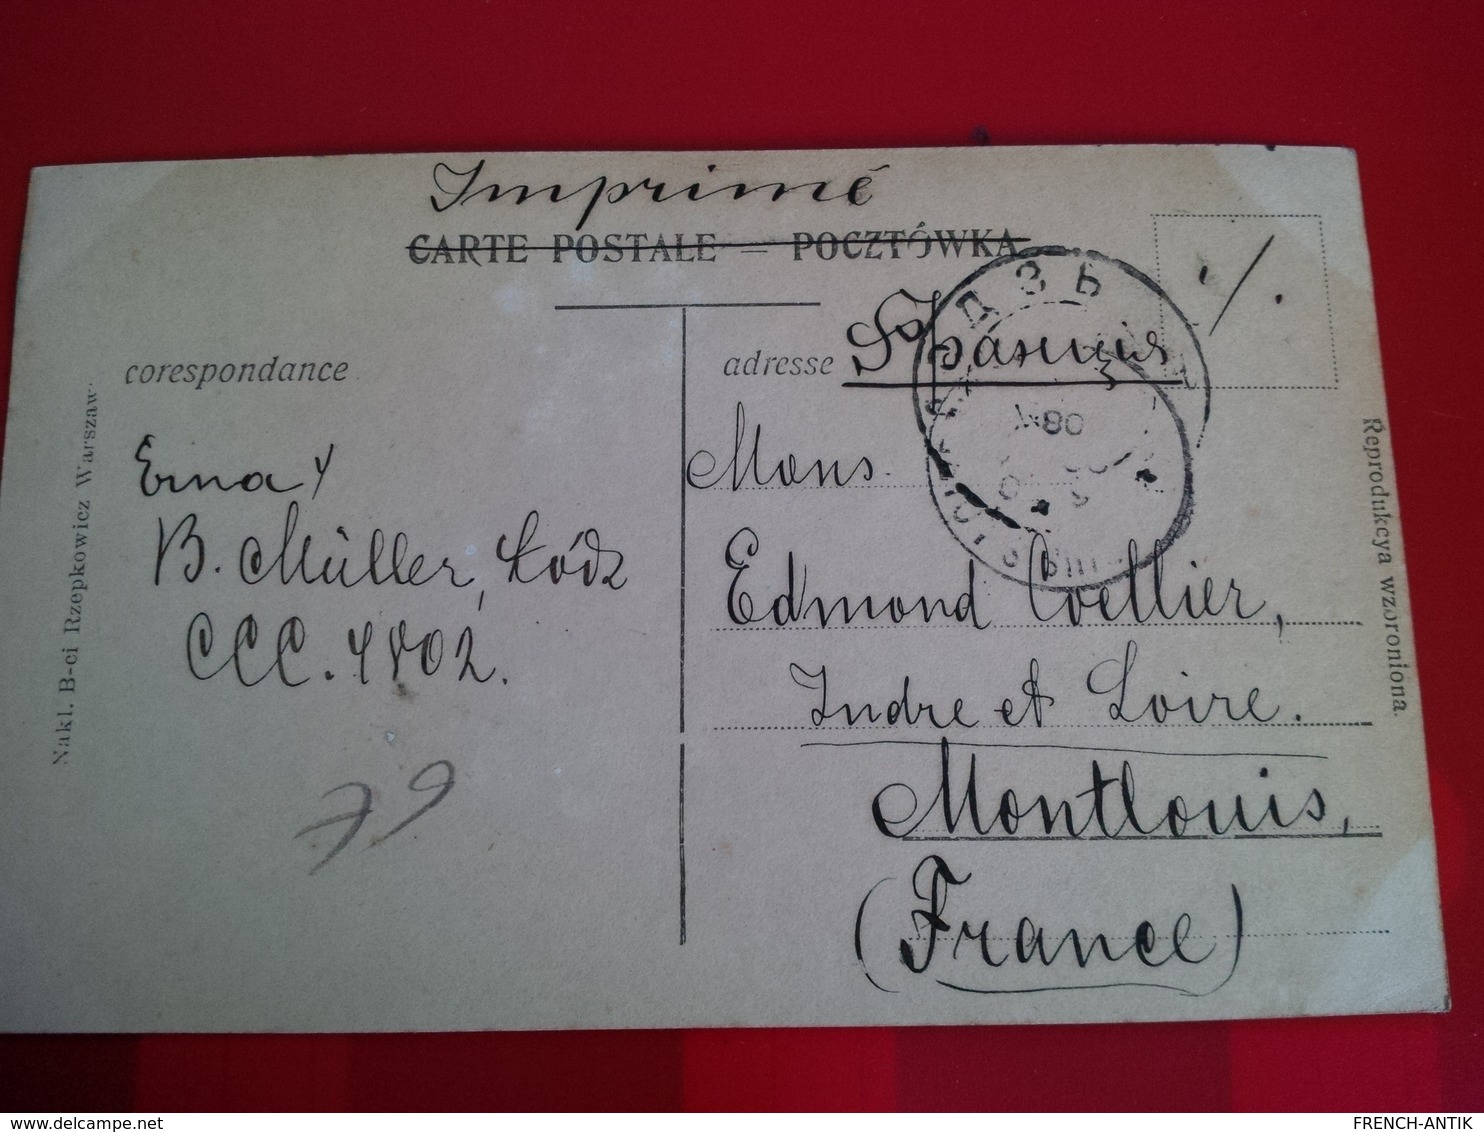 Imprimé
CARTE POSTALE — POCZTÓWKA
corespondance
adresse Франція
Mons.
Edmond Coellier,
Indre et Loire.
Montlouis,
(France)
Erna
B. Müller, Łódz
CCC. 4802.
79
Nakl. B-ci Rzepkowicz Warszaw
Reprodukcya wzbroniona.
delcampe.net
FRENCH-ANTIK